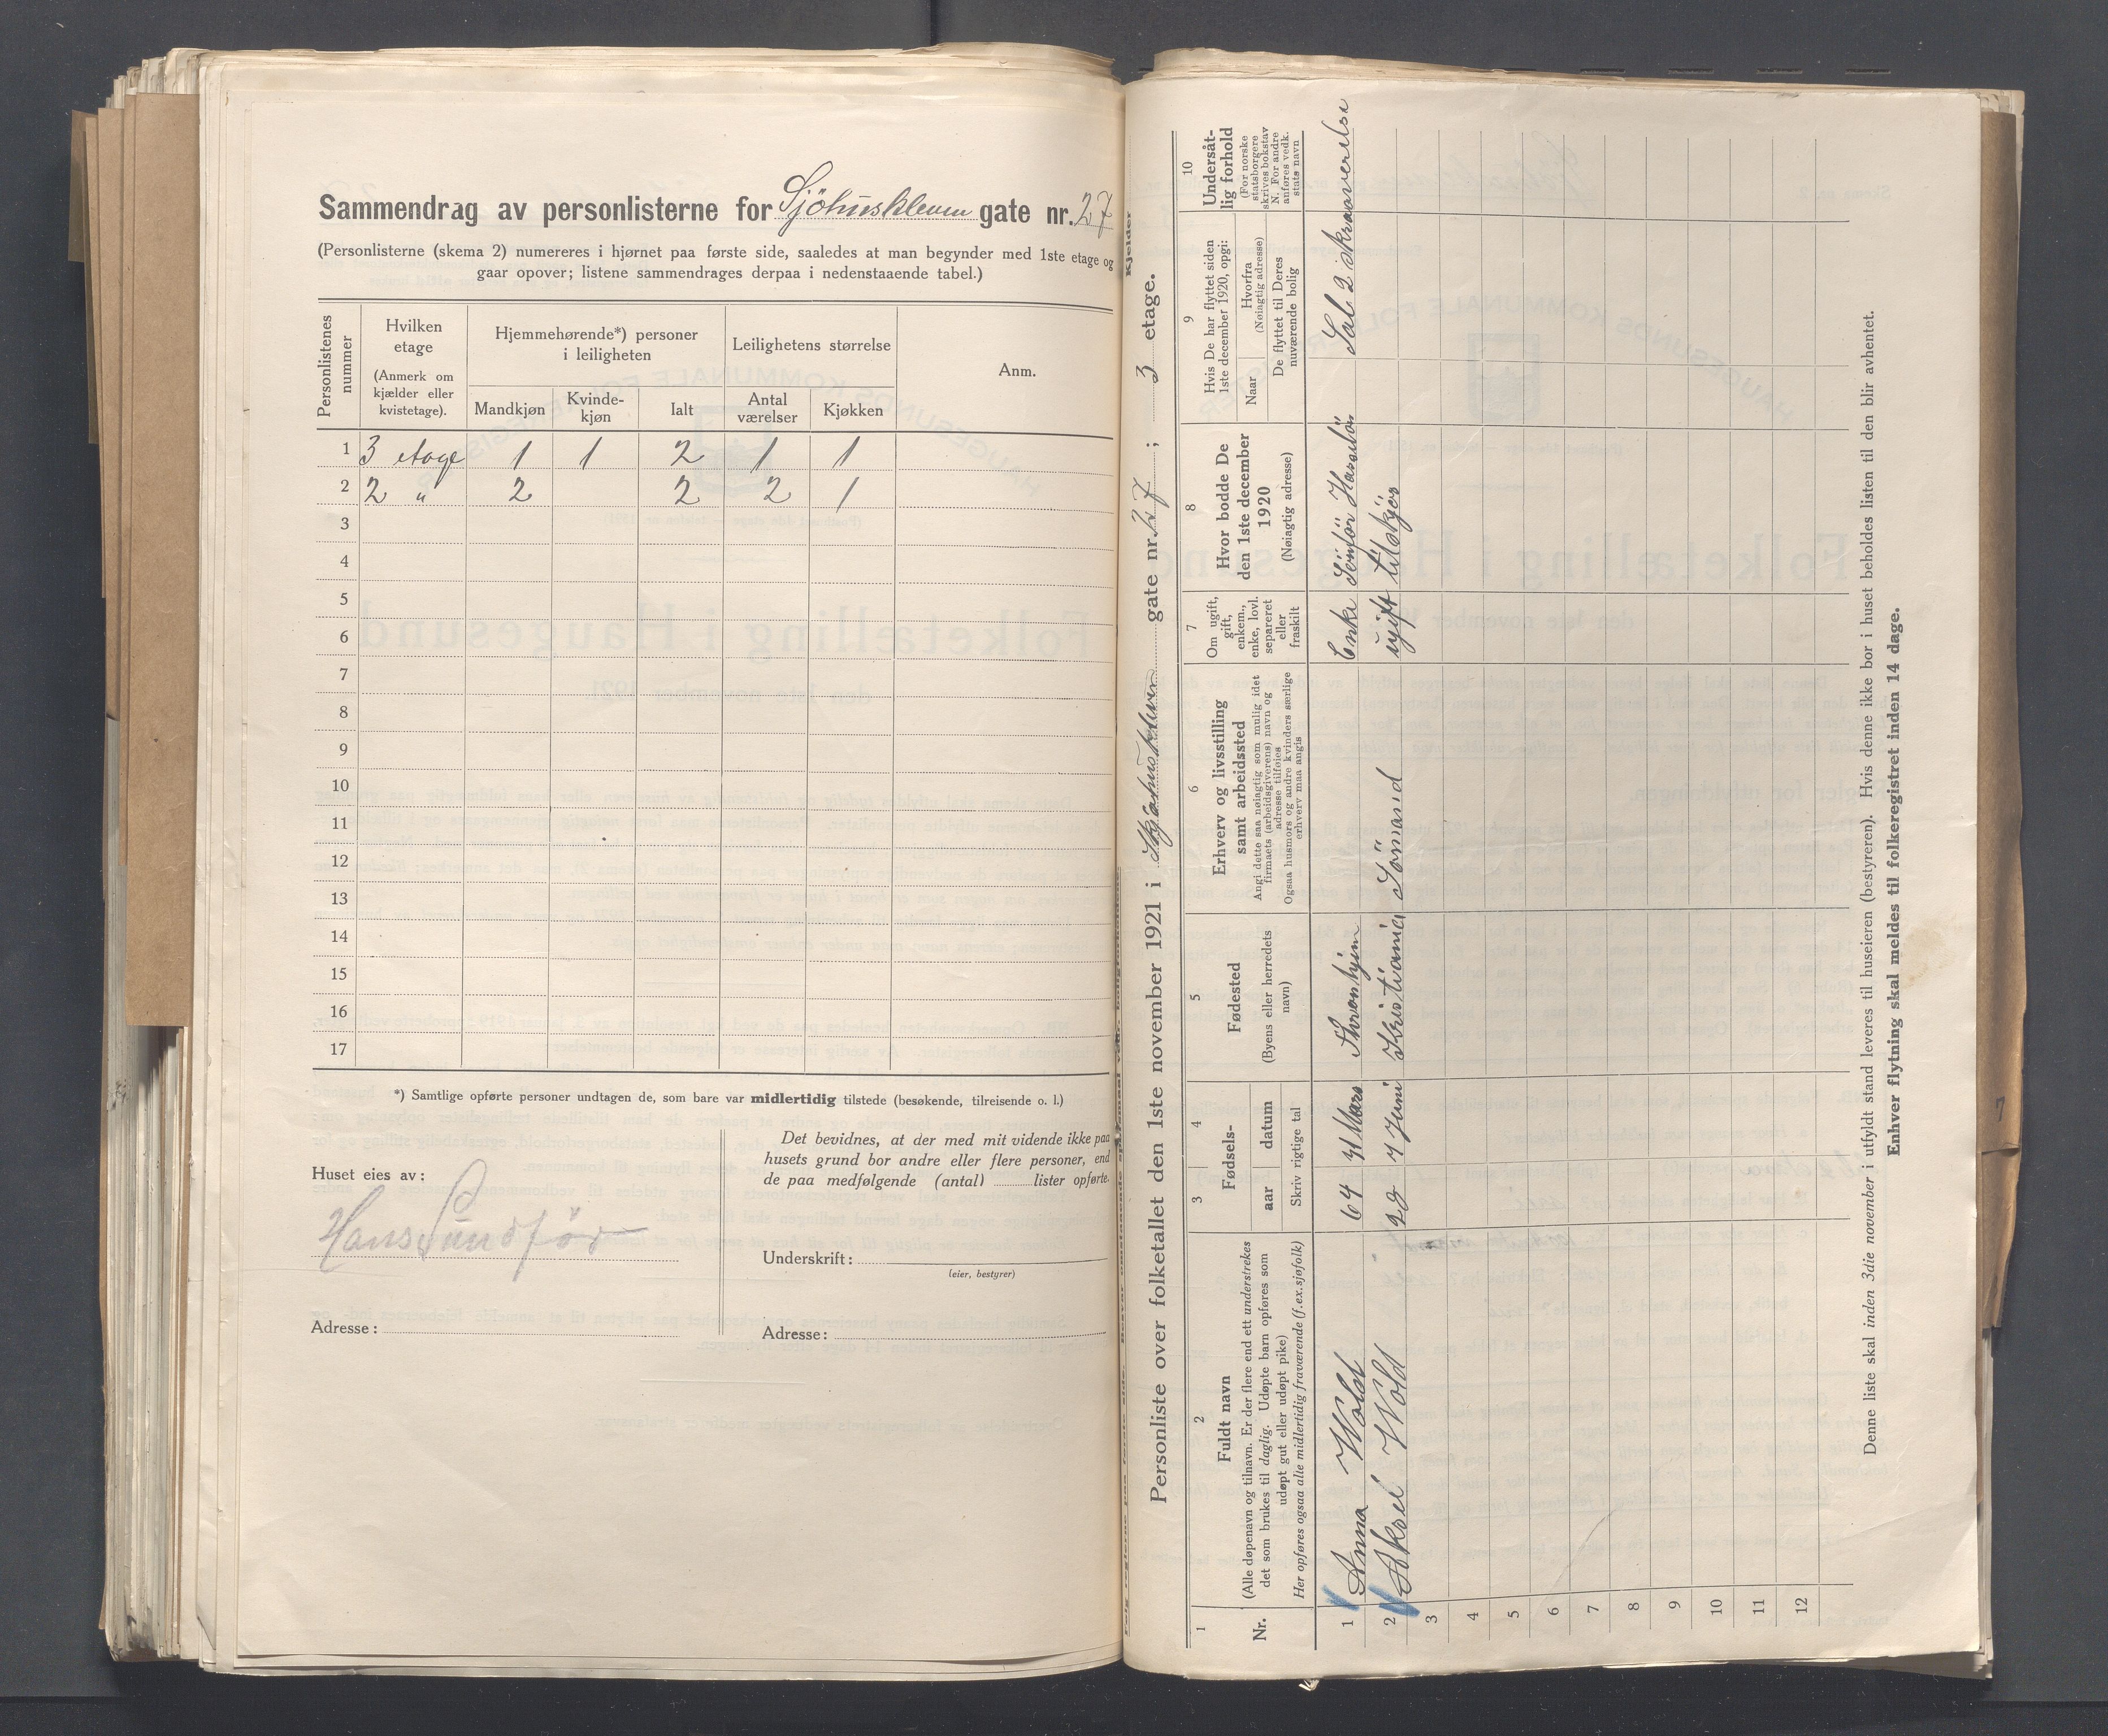 Sammendrag av personlisterne for Sjöhuskleven gate nr. 27
(Personlisterne (skema 2) numereres i hjørnet paa første side, saaledes at man begynder med 1ste etage og
gaar opover; listene sammendrages derpaa i nedenstaaende tabel.)
Personlistenes nummer
Hvilken etage
(Anmerk om kjælder eller kvistetage).
Hjemmehørende*) personer i leiligheten
Mandkjøn
Kvinde-kjøn
Ialt
Leilighetens størrelse
Antal værelser
Kjøkken
Anm.
1 3 etage 1 1 2 1 1
2 2 " 2 2 2 1
3
4
5
6
7
8
9
10
11
12
13
14
15
16
17
*) Samtlige opførte personer undtagen de, som bare var midlertidig tilstede (besøkende, tilreisende o. l.)
Huset eies av:
Hans Sundför
Adresse:
Det bevidnes, at der med mit vidende ikke paa
husets grund bor andre eller flere personer, end
de paa medfølgende (antal) lister opførte.
Underskrift:
(eier, bestyrer)
Adresse:
Personliste over folketallet den 1ste november 1921 i gate nr. 27; 3 etage.
Kjelder
1
Nr.
2
Fuldt navn
(Alle døpenavn og tilnavn. Er der flere end ett understrekes
det som brukes til daglig. Udøpte barn opføres som
udøpt gut eller udøpt pike)
Her opføres ogsaa alle midlertidig fraværende (f.ex.sjøfolk)
3 4
Fødsels-
aar datum
Skriv rigtige tal
5
Fødested
(Byens eller herredets
navn)
6
Erhverv og livsstilling
samt arbeidssted
Angi dette saa nøiagtig som mulig idet
firmaets (arbeidsgiverens) navn og
adresse tilføies
Ogsaa husmors og andre kvinders særlige
erhverv maa angis
7
Om ugift,
gift,
enkem.,
enke, lovl.
separeret
eller
fraskilt
8
Hvor bodde De
den 1ste december
1920
(Nøiagtig adresse)
9
Hvis De har flyttet siden
1ste december 1920, opgi:
Naar
Hvorfra
(Nøiagtig adresse)
De flyttet til Deres
nuværende bolig
10
Undersåt-
lig forhold
(For norske
statsborgere
skrives bokstav
N. For andre
anføres vedk.
stats navn
1 Anna Wold 64 31 Mars Thronhjem Enke Sal 2 skraaverelse
2 Aksel Wold 28 7 Juni Kristiania Sömand ugift
3
4
5
6
7
8
9
10
11
12
Denne liste skal inden 3die november i utfyldt stand leveres til huseieren (bestyreren). Hvis denne ikke bor i huset beholdes listen til den blir avhentet.
Enhver flytning skal meldes til folkeregistret inden 14 dage.